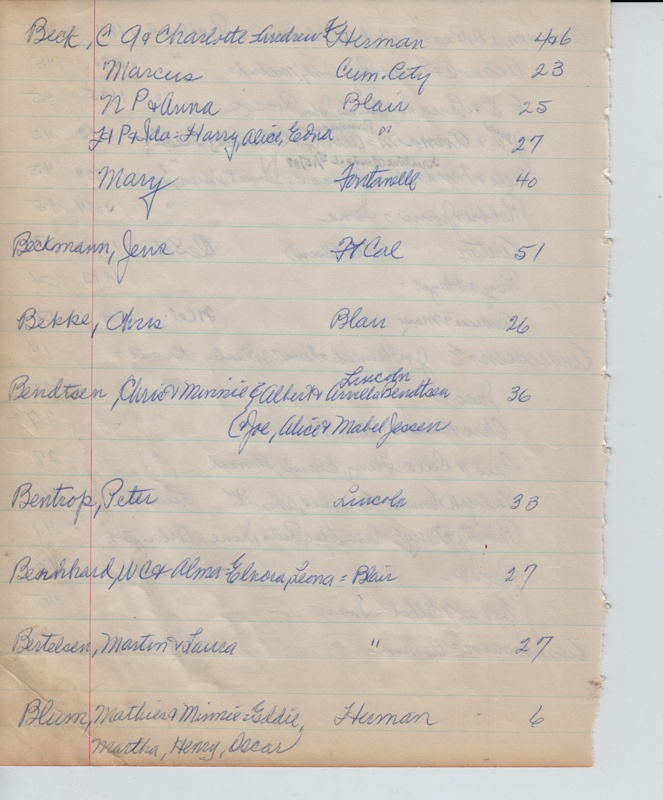 Beck, C A & Charlotte = Andrew F Herman 4+6
Marcus Cum. City 23
N P & Anna Blair 25
H P & Ida = Harry, Alice, Edna " 27
Mary Fontanelle 40
Beckmann, Jens Ft Cal 51
Bekke, Chris Blair 26
Lincoln
Bendtsen, Chris & Minnie & Albert & Bendtsen 36
& Joe, Alice & Mabel Jessen
Bentrop, Peter Lincoln 33
Bernhard, W C & Alma = Elnora, Leona = Blair 27
Bertelsen, Martin & Laura " 27
Blum, Mathies & Minnie = Eddie, Herman 6
Martha, Henry, Oscar